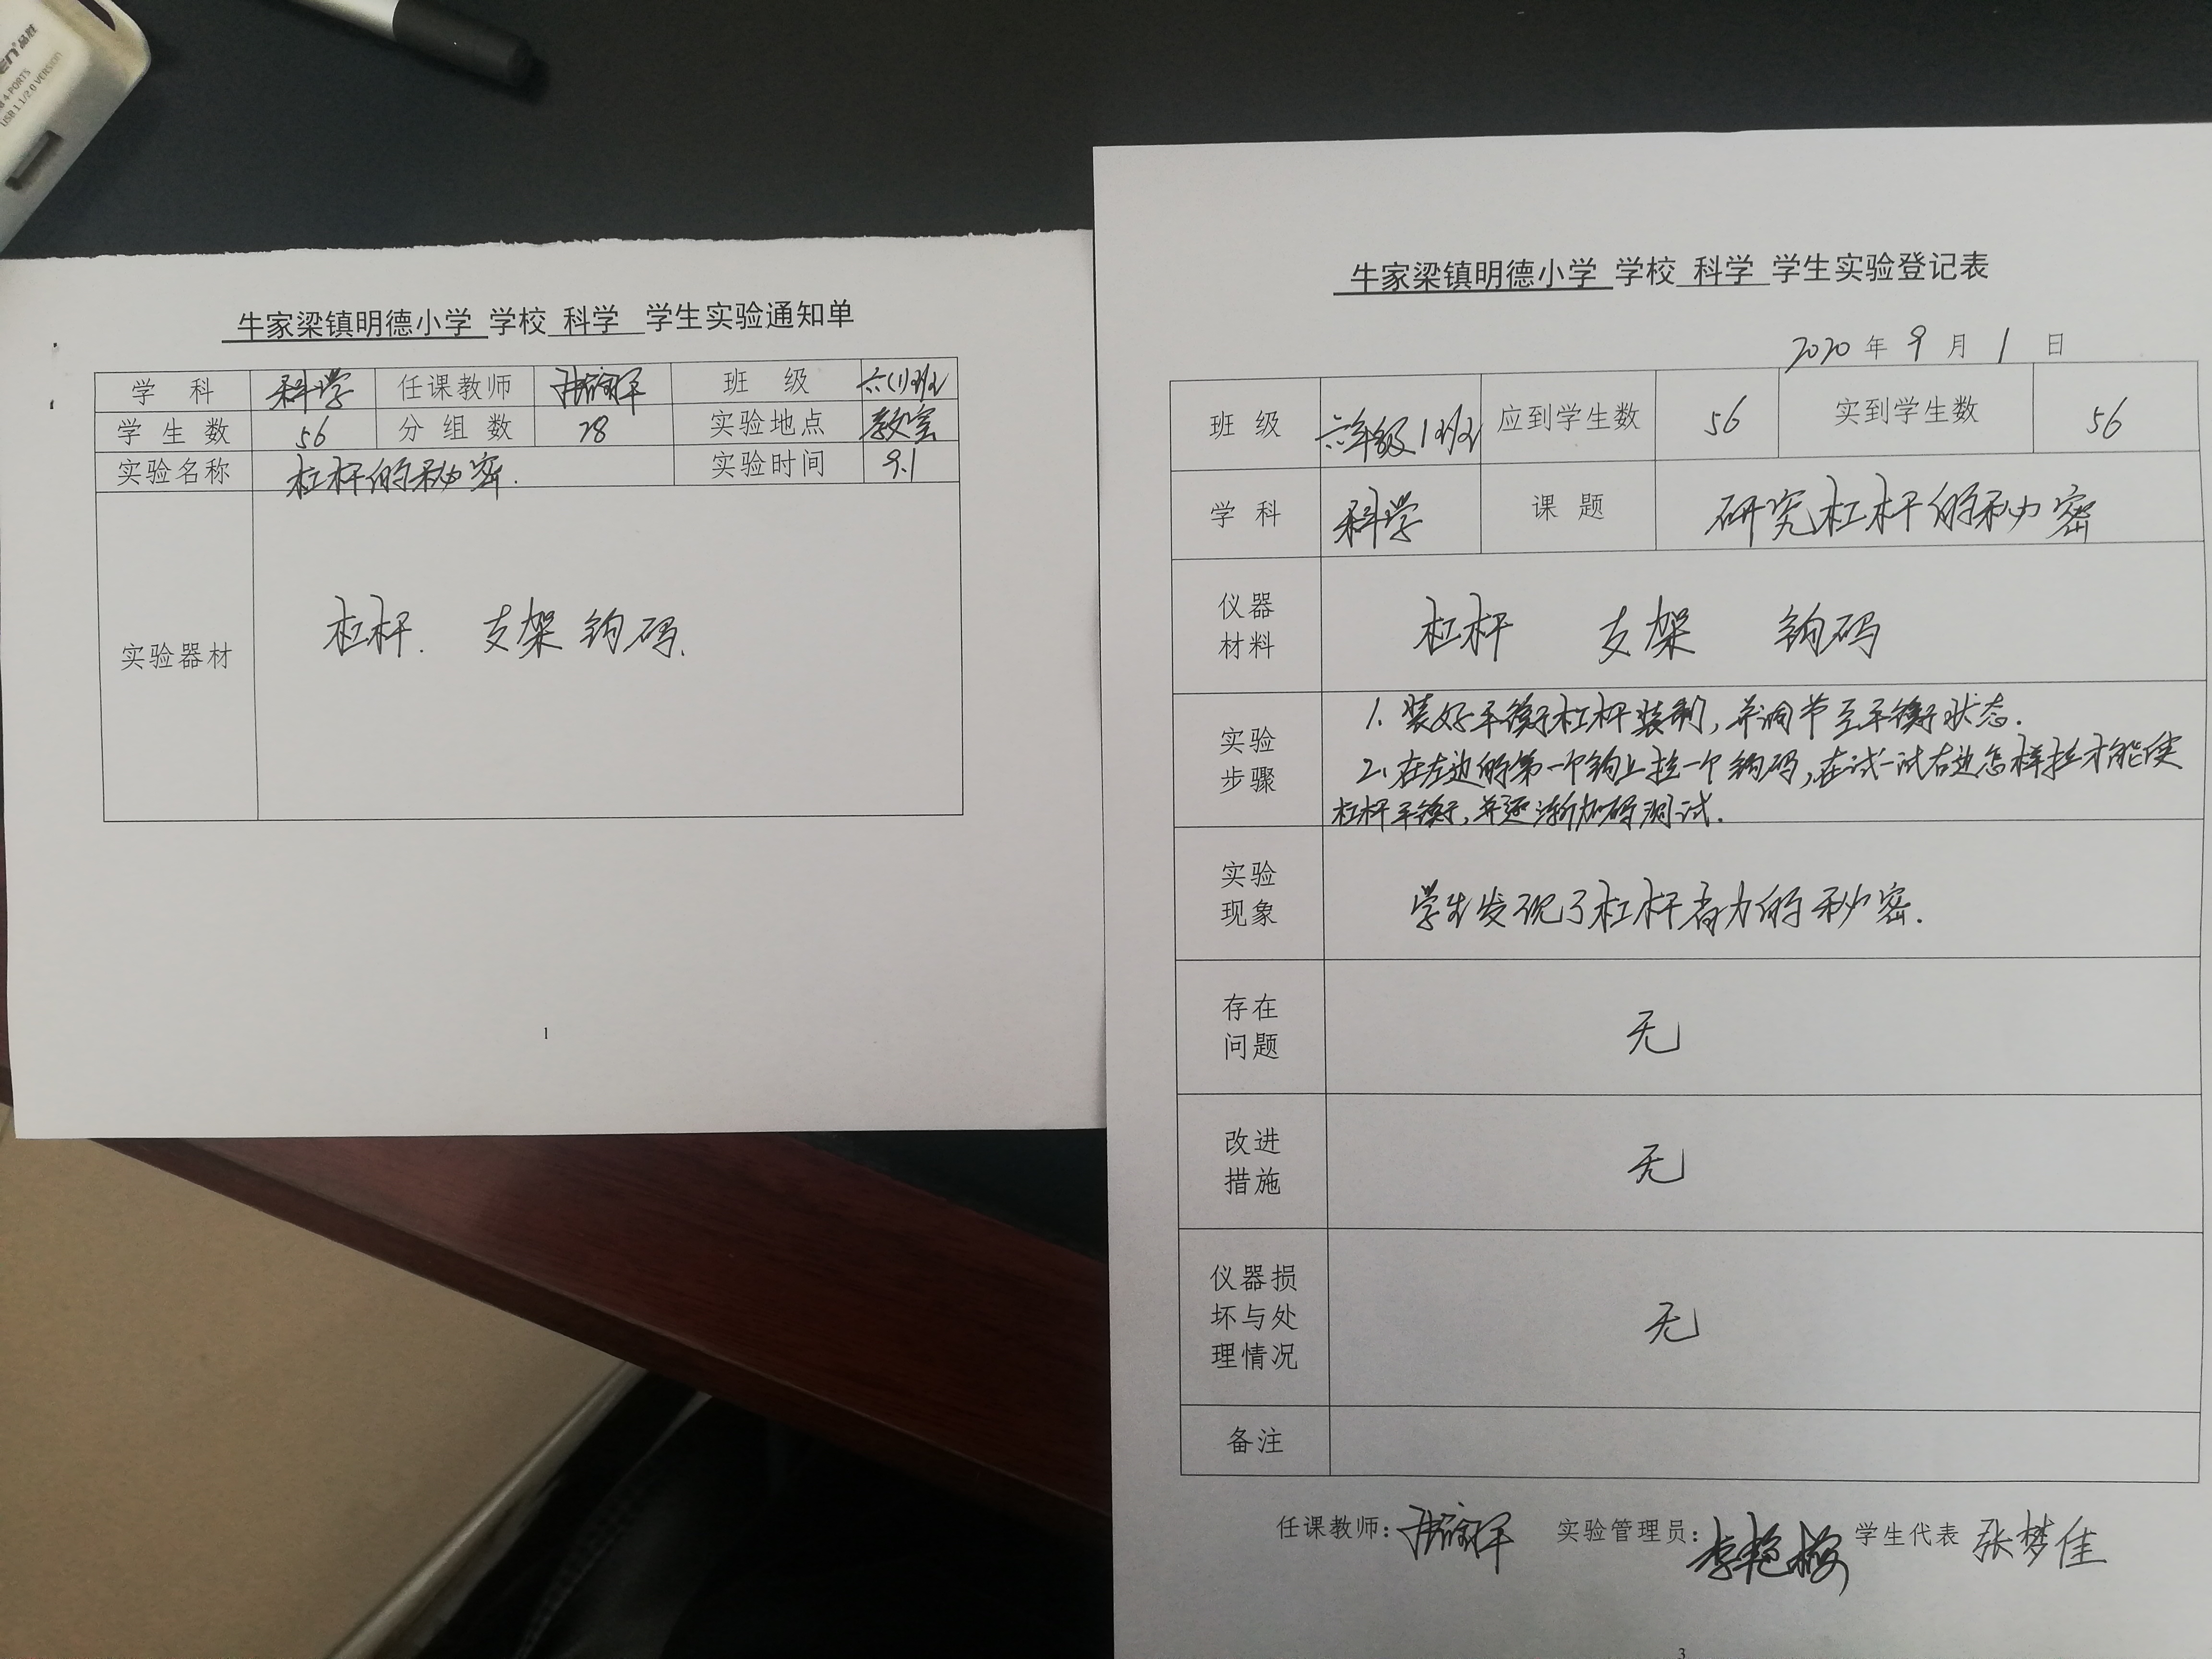 品胜
4-PORTS
USB 1.1/2.0 VERSION
牛家梁镇明德小学 学校 科学 学生实验通知单
学 科 科学 任课教师 班 级 六(1)班
学 生 数 56 分 组 数 28 实验地点 教室
实验名称 杠杆的秘密. 实验时间 9.1
实验器材 杠杆. 支架 钩码.
1
牛家梁镇明德小学 学校 科学 学生实验登记表
2020 年 9 月 1 日
班 级 六年级1班 应到学生数 56 实到学生数 56
学 科 科学 课 题 研究杠杆的秘密
仪器
材料
杠杆 支架 钩码
实验
步骤
1. 装好平衡杠杆装制,并调节至平衡状态.
2. 在左边的第一个钩上挂一个钩码,在试一试右边怎样挂才能使
杠杆平衡,并逐渐加码测试.
实验
现象
学生发现了杠杆省力的秘密.
存在
问题
无
改进
措施
无
仪器损
坏与处
理情况
无
备注
任课教师: 实验管理员: 李艳梅 学生代表 张梦佳
3